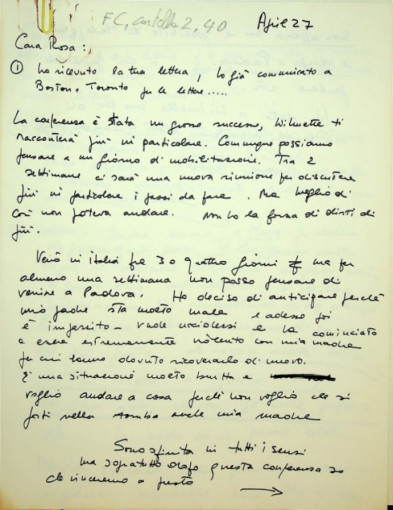 FC, cartella 2, 40
April 27
Cara Rosa:,
① ho ricevuto la tua lettera, ho già comunicato a
Boston e Toronto per le lettere.....
La conferenza è stata un grosso successo, Wilmette ti
racconterà più in particolare. Comunque possiamo
pensare a un giorno di mobilitazione. Tra 2
settimane ci sarà una nuova riunione per discutere
più in particolare i passi da fare. Ma meglio di
così non poteva andare. non ho la forza di dirti di
più.
Verrò in italia fra 3 o quattro giorni ma per
almeno una settimana non posso pensare di
venire a Padova. Ho deciso di anticipare perchè
mio padre sta molto male e adesso poi
è impazzito - vuole uccidersi e ha cominciato
a essere estremamente violento con mia madre
per cui hanno dovuto ricoverarlo di nuovo.
È una situazione molto brutta e
voglio andare a casa perchè non voglio che si
porti nella tomba anche mia madre
Sono sfinita in tutti i sensi
ma sopratutto dopo questa conferenza so
che vinceremo a presto
→